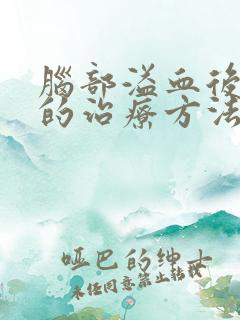 腦部溢血後
的治療方法
哑巴的绅士
未经同意禁止转载